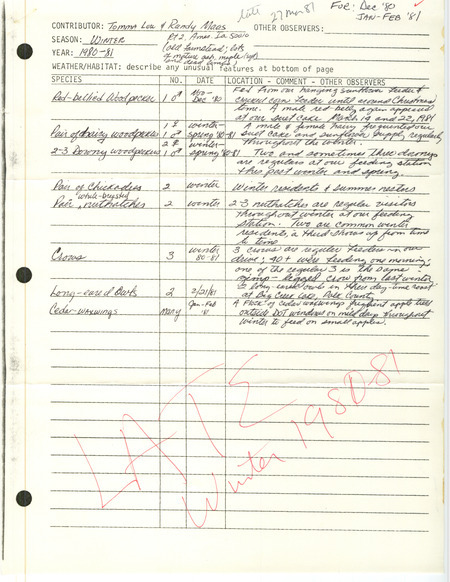 late 27 Mar 81
FOR: Dec '80
JAN-FEB '81
CONTRIBUTOR: Tomma Lou & Randy Maas OTHER OBSERVERS:
SEASON: WINTER Rt 2, Ames Ia 50010
YEAR: 1980-81 (old farmstead; lots
of mature ash, maple
and dead limbs)
WEATHER/HABITAT: describe any unusual features at bottom of page
SPECIES NO. DATE LOCATION - COMMENT - OTHER OBSERVERS
Red-bellied Woodpecker 1 ♂ Nov-Dec '80 Fed from our hanging sunflower feeder &
cracked corn feeder until around Christmas
time. A male red-belly again appeared
at our suet cake March 19 and 22, 1981
Pair of hairy woodpeckers 1 ♀ 1 ♂ winter-spring '80-81 A male & female hairy frequented our
suet cake and sunflower supply, regularly,
throughout the winter.
2-3 Downy woodpeckers 2 ♀ 1 ♂ winter-spring '80-81 Two and sometimes three downys
are regulars at our feeding station
this past winter and spring.
Pair of Chickadees 2 winter Winter residents & summer nesters
Pair white-breasted nuthatches 2 winter 2-3 nuthatches are regular visitors
throughout winter at our feeding
station. Two are common winter
residents, a third shows up from time
to time.
Crows 3 winter 80-81 3 crows are regular feeders in our
drive; 40+ were feeding one morning;
one of the regular 3 is the same
gimp-legged crow from last winter
Long-eared Owls 2 2/21/81 2 long-eared owls in their day-time roost
at Big Creek Lake, Polk County
Cedar-waxwings many Jan-Feb '81 A flock of cedar waxwings frequent apple trees
outside DOT windows on mild days throughout
winter to feed on small apples.
LATE
Winter 1980-81